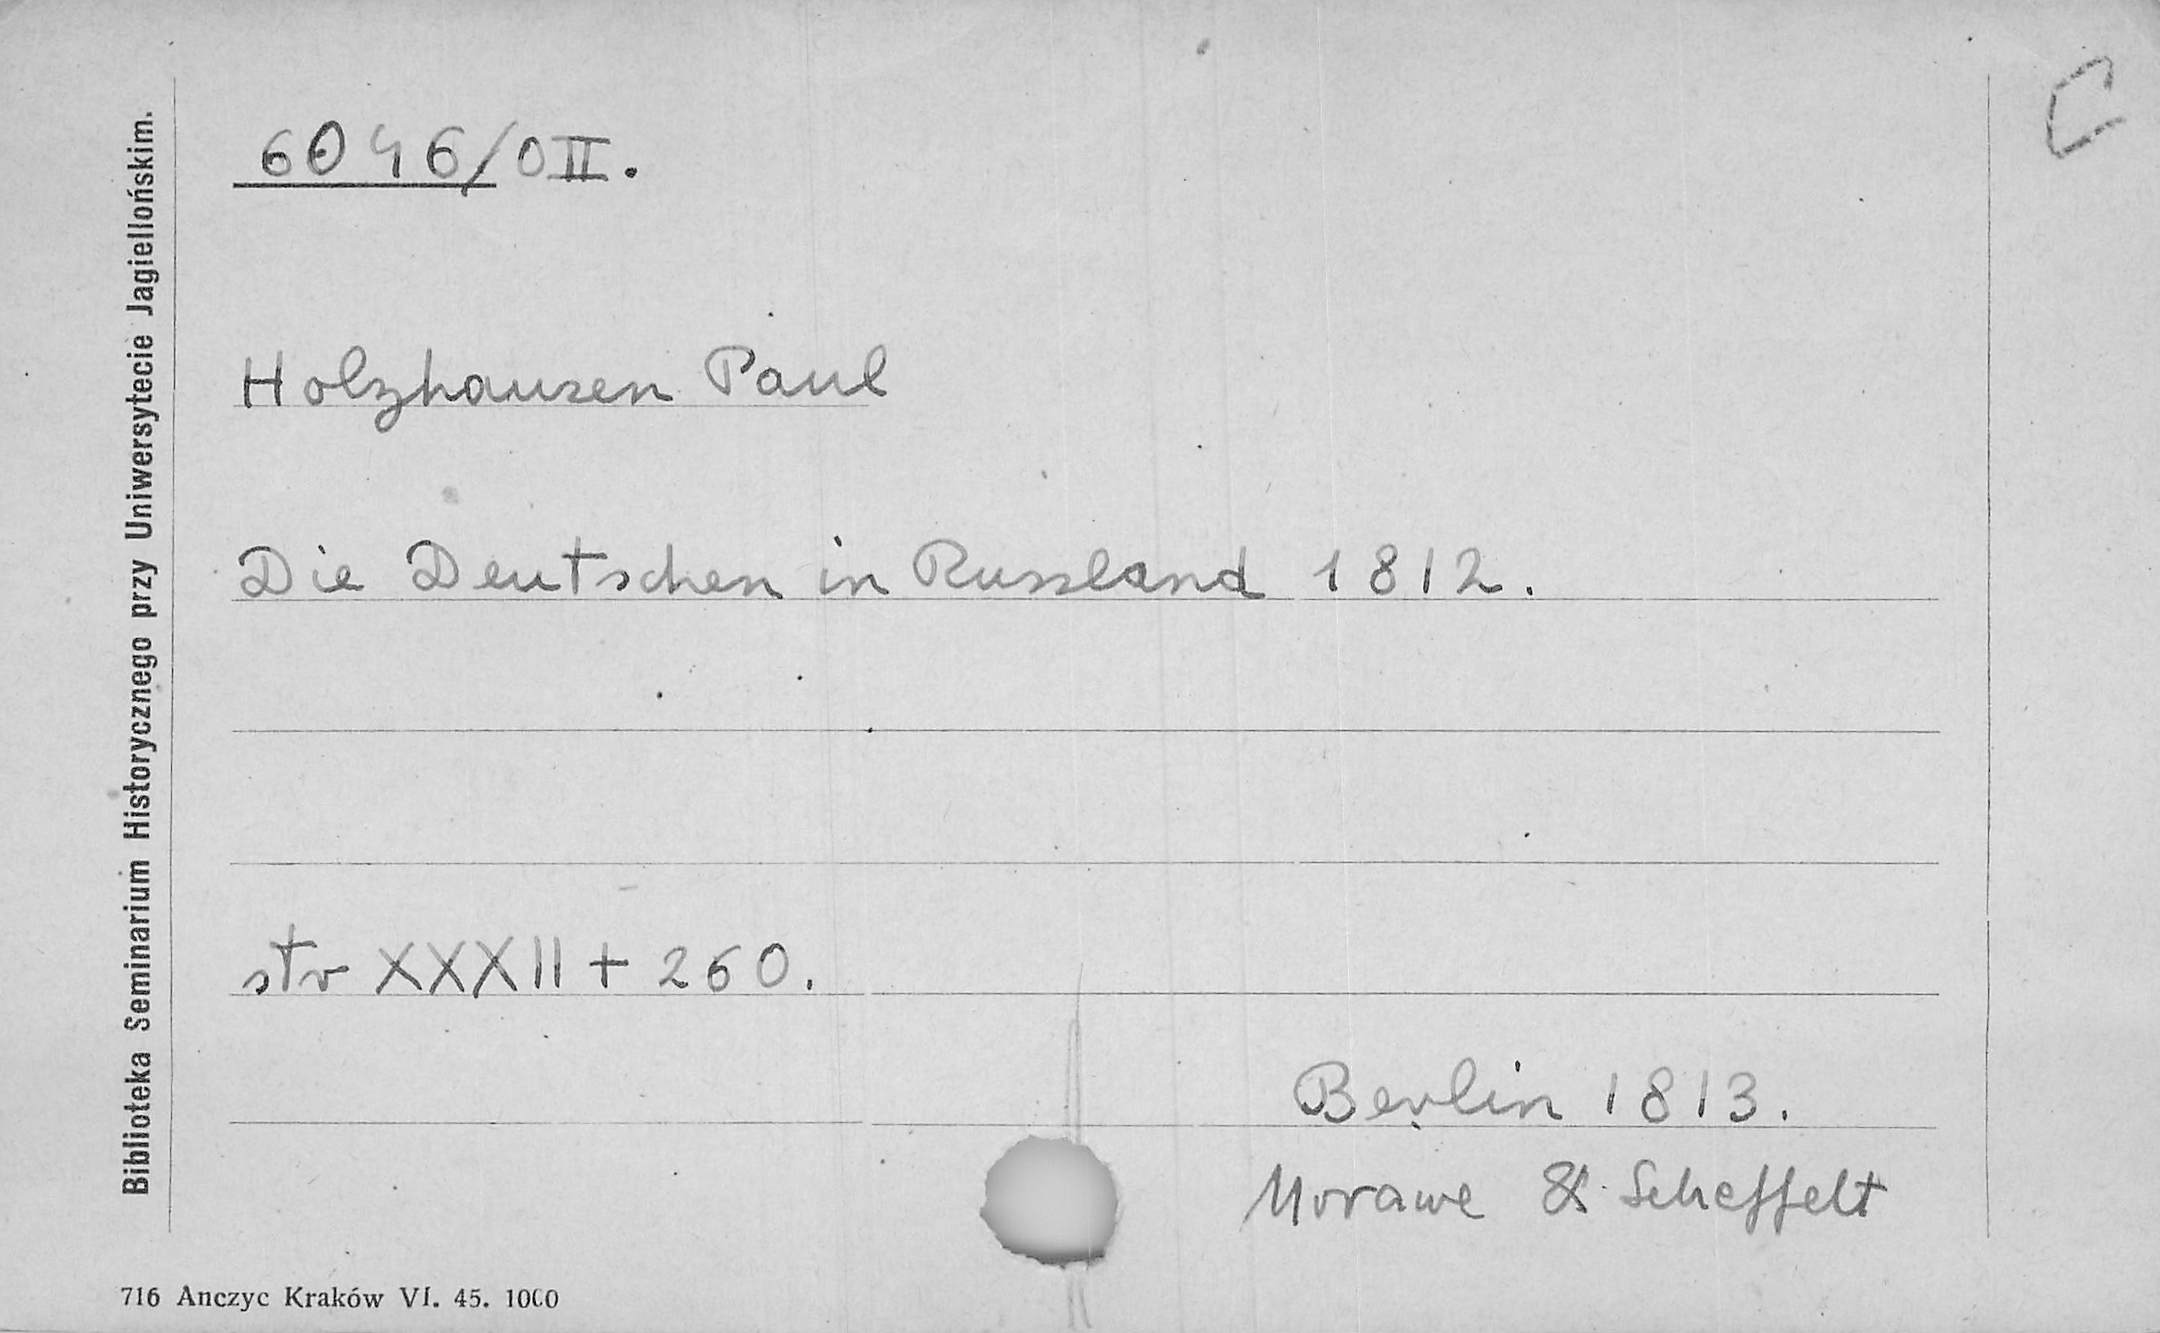 C
6046/OII.
Biblioteka Seminarium Historycznego przy Uniwersytecie Jagiellońskim.
Holzhausen Paul
Die Deutschen in Russland 1812.
str XXXII + 260.
Berlin 1813.
Morawe & Scheffelt
716 Anczyc Kraków VI. 45. 1000